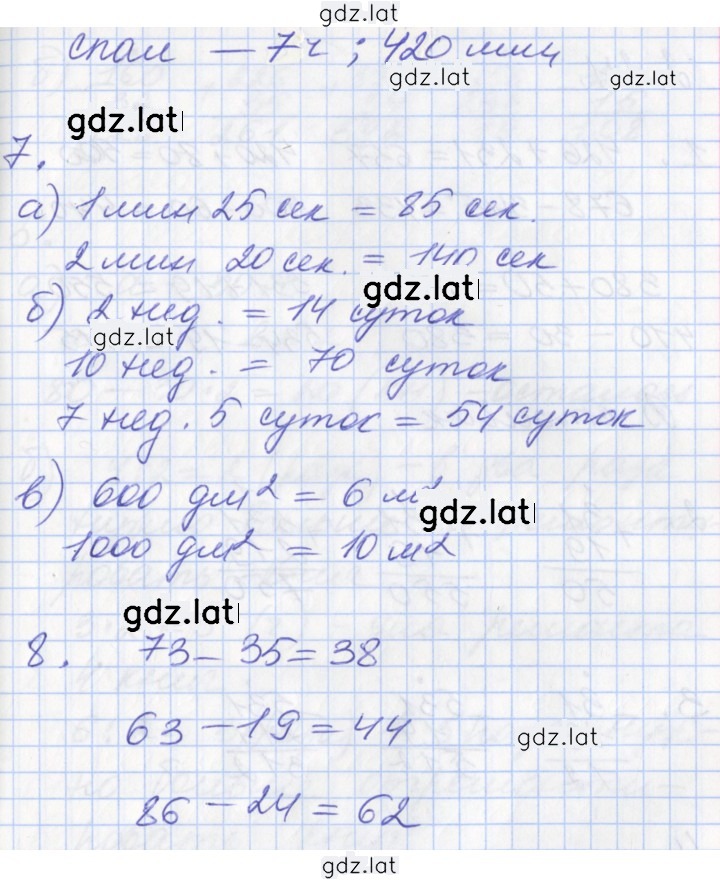 gdz.lat
спал — 7 ч ; 420 мин
gdz.lat
gdz.lat
gdz.lat
7.
а) 1 мин 25 сек = 85 сек.
2 мин 20 сек. = 140 сек
gdz.lat
б) 2 нед. = 14 суток
gdz.lat
10 нед. = 70 суток
7 нед. 5 суток = 54 суток
в) 600 дм² = 6 м²
gdz.lat
1000 дм² = 10 м²
gdz.lat
8. 73 – 35 = 38
63 – 19 = 44
gdz.lat
86 – 24 = 62
gdz.lat